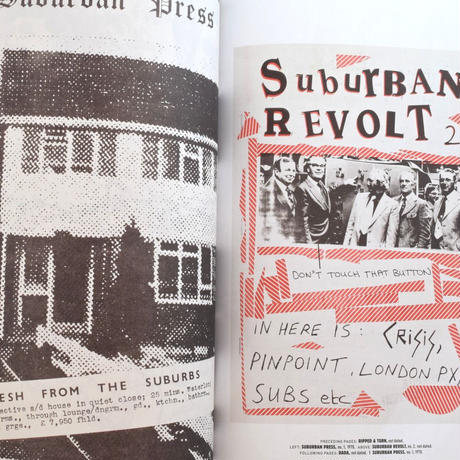 Suburban Press
ESH FROM THE SUBURBS
ective s/d house in quiet close; 25 mins. Waterloo
rms., through lounge/dngrm., gd., ktchn., bathrm.
grgs., £ 7,950 fhld.
SubuRBAN
REVOLT 2
DON'T TOUCH THAT BUTTON
IN HERE IS: CRISIS,
PINPOINT, LONDON PX,
SUBS etc
PRECEDING PAGES: RIPPED & TORN, not dated.
LEFT: SUBURBAN PRESS, no. 1, 1970. ABOVE: SUBURBAN REVOLT, no. 2, not dated.
FOLLOWING PAGES: DADA, not dated.